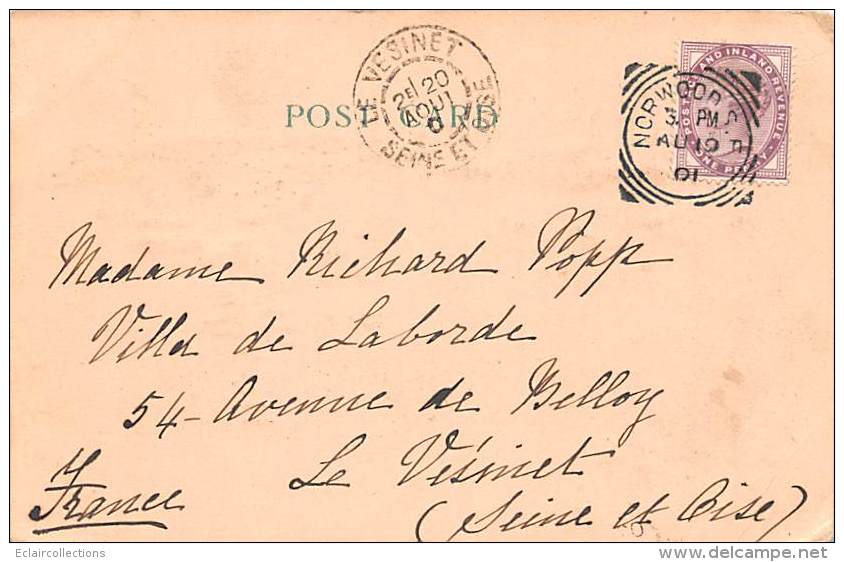 LE VESINET
2E 20
AOUT
SEINE ET OISE
POST CARD
POSTAGE AND INLAND REVENUE
ONE PENNY
NORWOOD S.E
3 PM
AU 19
01
Madame Richard Popp
Villa de Laborde
54 - Avenue de Belloy
Le Vésinet
France
(Seine et Oise)
Eclaircollections
delcampe.net